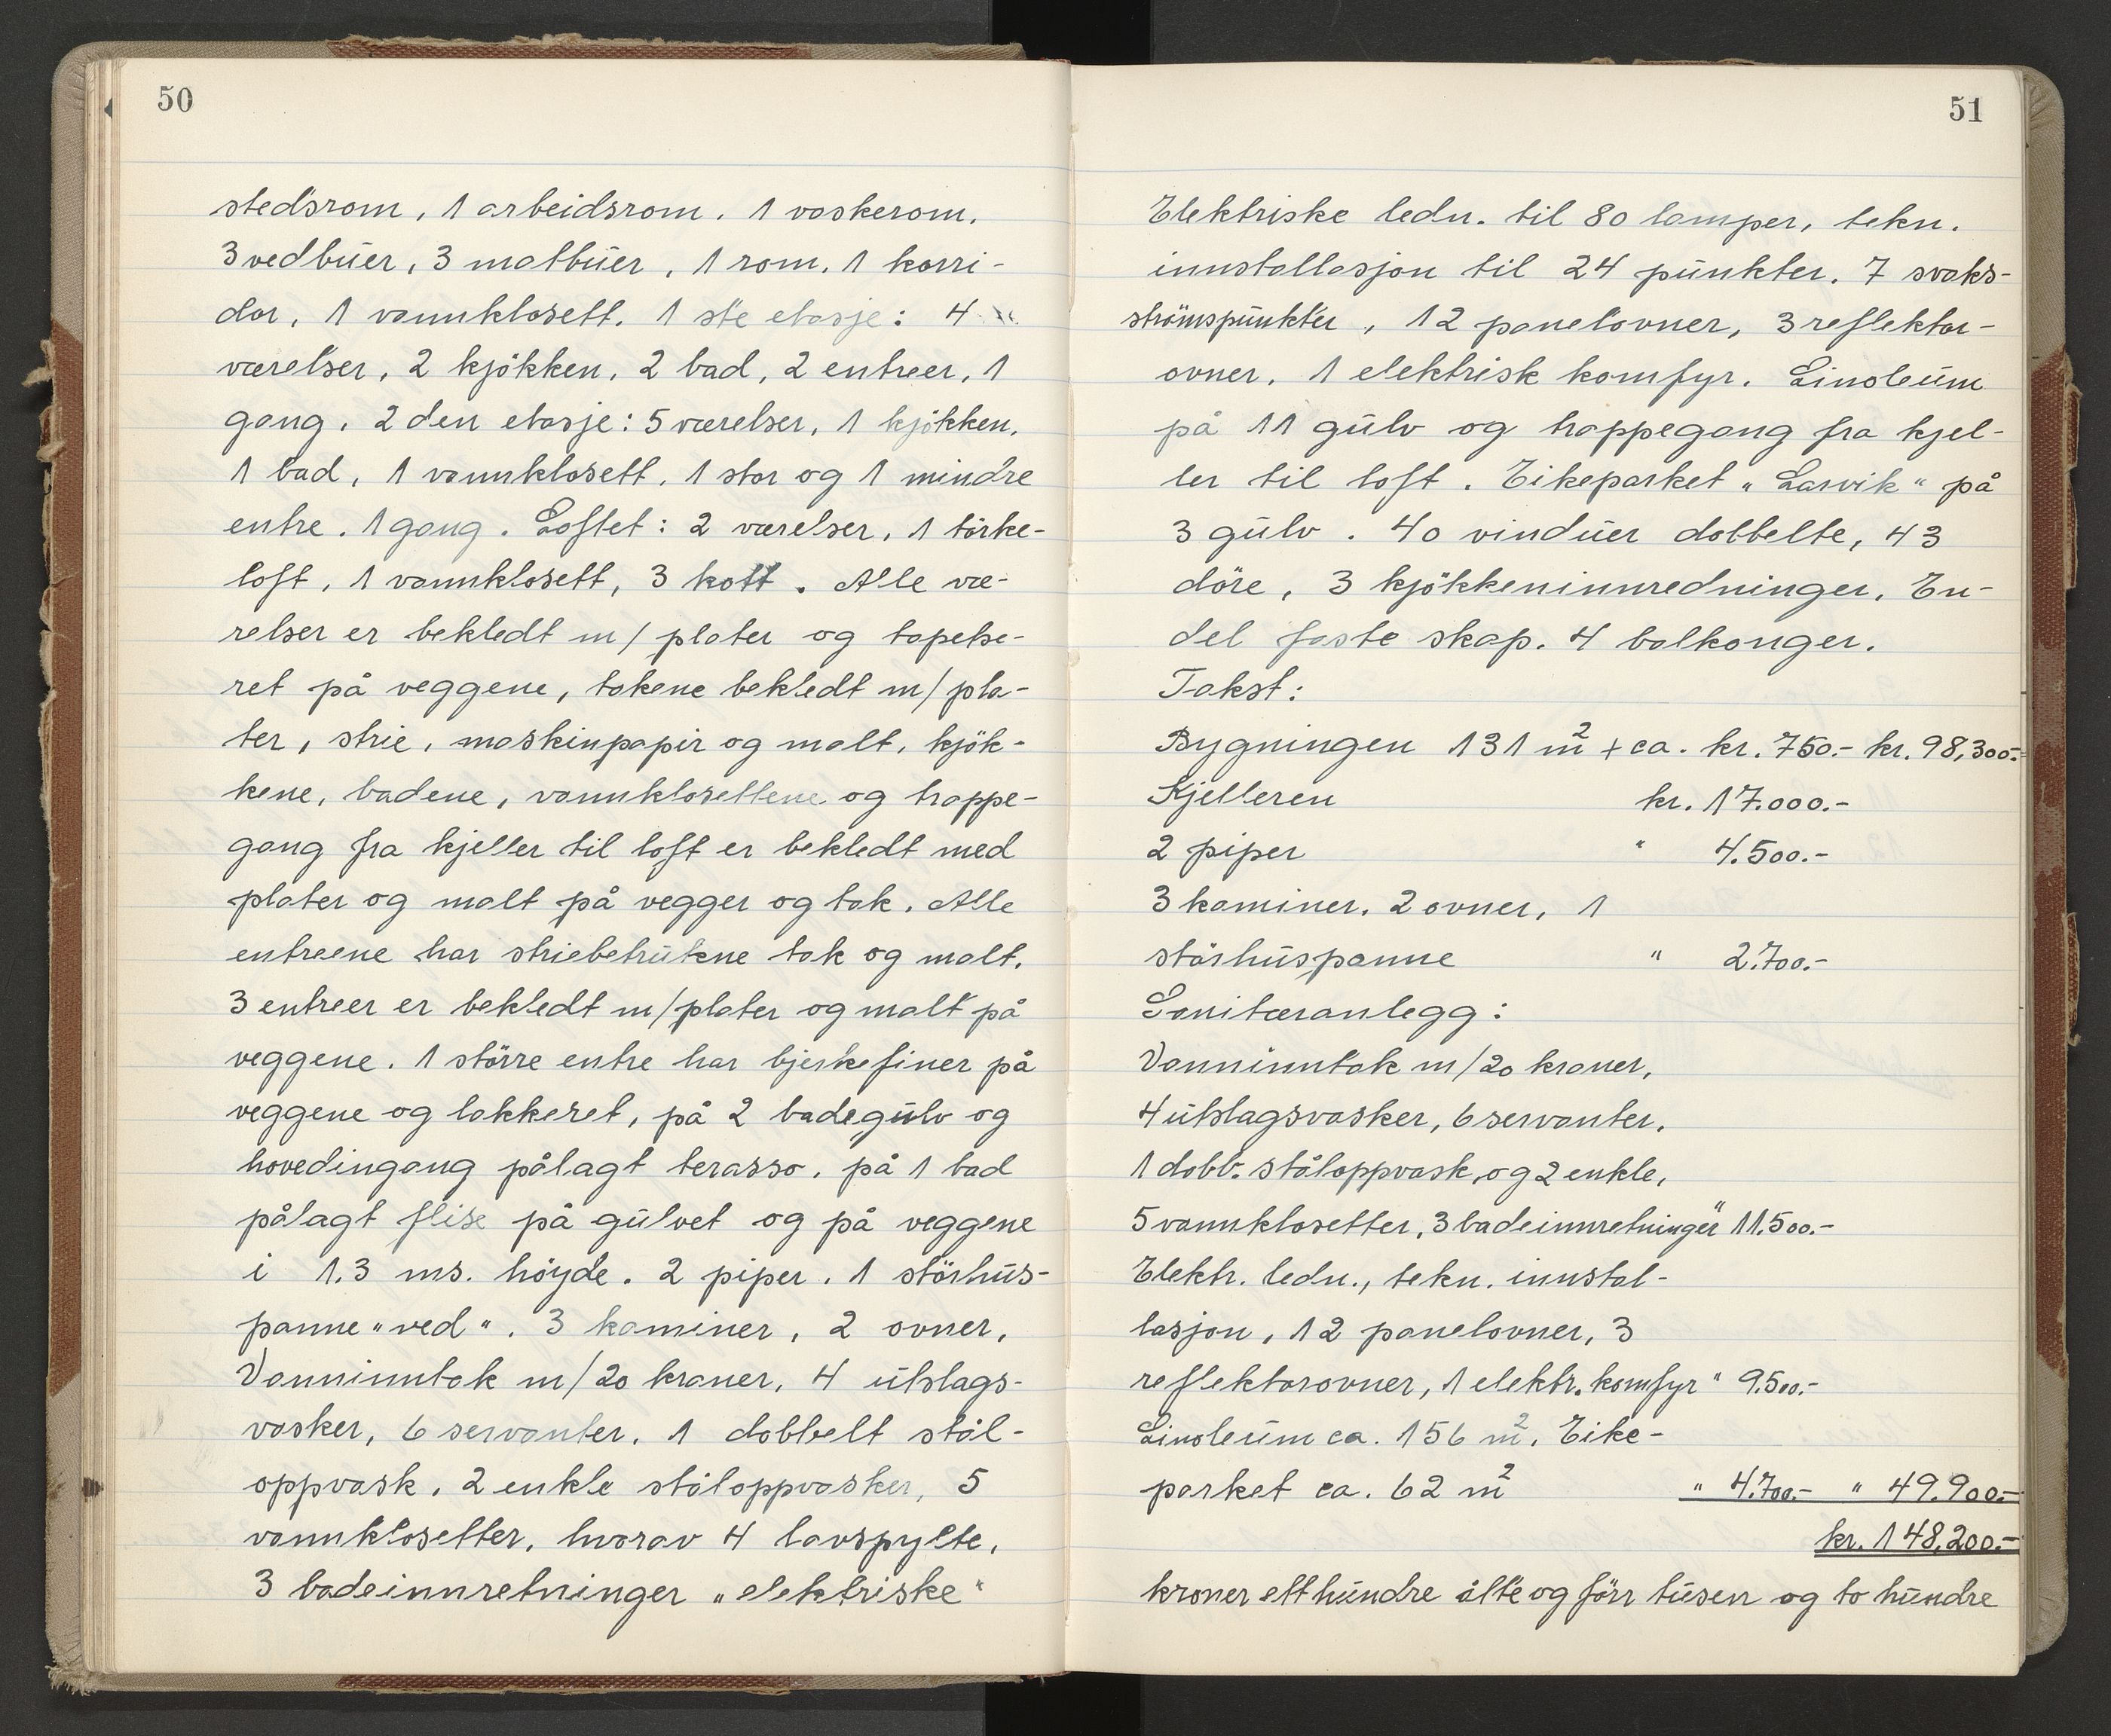 50
stedsrom, 1 arbeidsrom, 1 vaskerom,
3 vedbuer, 3 matbuer, 1 rom, 1 korri-
dor, 1 vannklosett. 1 ste etasje: 4
værelser, 2 kjökken, 2 bad, 2 entreer, 1
gang. 2 den etasje: 5 værelser, 1 kjökken,
1 bad, 1 vannklosett, 1 stor og 1 mindre
entre. 1 gang. Loftet: 2 værelser, 1 törke-
loft, 1 vannklosett, 3 kott. Alle væ-
relser er bekledt m/ plater og tapetse-
ret på veggene, takene bekledt m/ pla-
ter, strie, maskinpapir og malt, kjök-
kene, badene, vannklosettene og trappe-
gang fra kjeller til loft er bekledt med
plater og malt på vegger og tak. Alle
entreene har striebetrukne tak og malt.
3 entreer er bekledt m/plater og malt på
veggene. 1 större entre har bjerkefiner på
veggene og lakkeret, på 2 badegulv og
hovedingang pålagt terasso, på 1 bad
pålagt flise på gulvet og på veggene
i 1.3 ms. höyde. 2 piper. 1 störhus-
panne "ved". 3 kaminer, 2 ovner,
Vanninntak m/20 kraner, 4 utslags-
vasker, 6 servanter, 1 dobbelt stål-
oppvask, 2 enkle ståloppvasker, 5
vannklosetter, hvorav 4 lavspylte,
3 badeinnretninger "elektriske"
51
Elektriske ledn. til 80 lamper, tekn.
innstallasjon til 24 punkter, 7 svaks-
strömspunkter, 12 panelovner, 3 reflektor-
ovner, 1 elektrisk komfyr. Linoleum
på 11 gulv og trappegang fra kjel-
ler til loft. Eikeparket "Larvik" på
3 gulv. 40 vinduer dobbelte, 43
döre, 3 kjökkeninnredninger, En-
del faste skap. 4 balkonger.
Takst:
Bygningen 131 m² + ca. kr. 750.- kr. 98,300.-
Kjelleren kr. 17.000.-
2 piper " 4.500.-
3 kaminer, 2 ovner, 1
störhuspanne " 2.700.-
Sanitæranlegg:
Vanninntak m/20 kraner,
4 utslagsvasker, 6 servanter,
1 dobb. ståloppvask, og 2 enkle,
5 vannklosetter, 3 badeinnretninger " 11.500.-
Elektr. ledn., tekn. innstal-
lasjon, 12 panelovner, 3
reflektorovner, 1 elektr. komfyr " 9.500.-
Linoleum ca. 156 m², Eike-
parket ca. 62 m² " 4.700.- " 49.900.-
kr. 148,200.-
kroner ett hundre åtte og förr tusen og to hundre